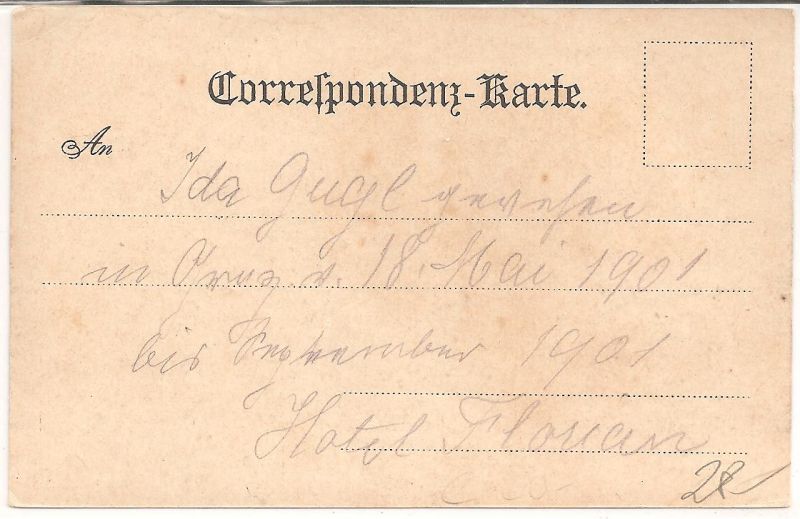 Correspondenz-Karte.
An
Ida Gugl gewesen
in Graz v. 18. Mai 1901
bis September 1901
Hotel Florian